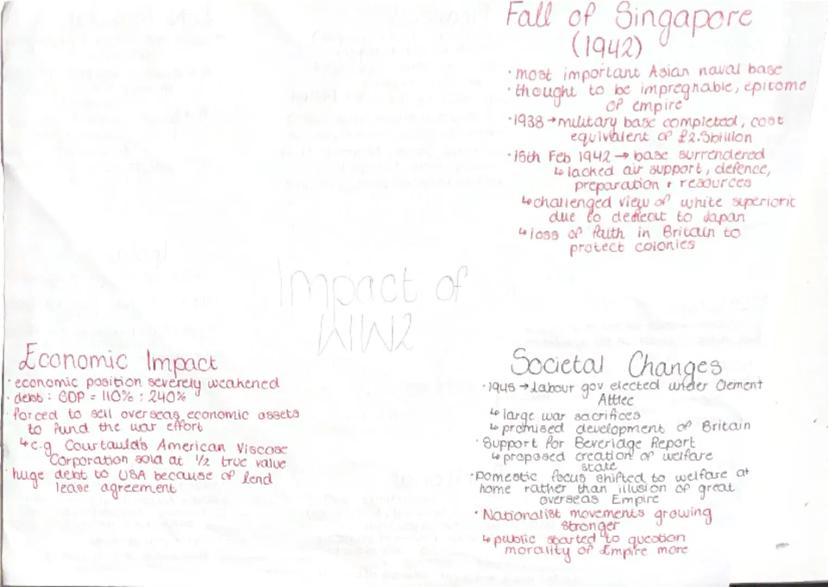 Fall of Singapore
(1942)
· most important Asian naval base
· thought to be impregnable, epitome
of empire
· 1938 → military base completed, cost
equivalent of £2.5billion
· 15th Feb 1942 → base surrendered
↳ lacked air support, defence,
preparation + resources
↳ challenged view of white superiorit
due to defeat to Japan
↳ loss of faith in Britain to
protect colonies
Impact of
WW2
Economic Impact
· economic position severely weakened
· debt : GDP = 110% : 240%
· forced to sell overseas economic assets
to fund the war effort
↳ e.g Courtauld's American Viscose
Corporation sold at 1/2 true value
· huge debt to USA because of lend
lease agreement
Societal Changes
· 1945 → labour gov elected under Clement
Attlee
↳ large war sacrifices
↳ promised development of Britain
· Support for Beveridge Report
↳ proposed creation of welfare
state
· Domestic focus shifted to welfare at
home rather than illusion of great
overseas Empire
· Nationalist movements growing
stronger
↳ public started to question
morality of Empire more